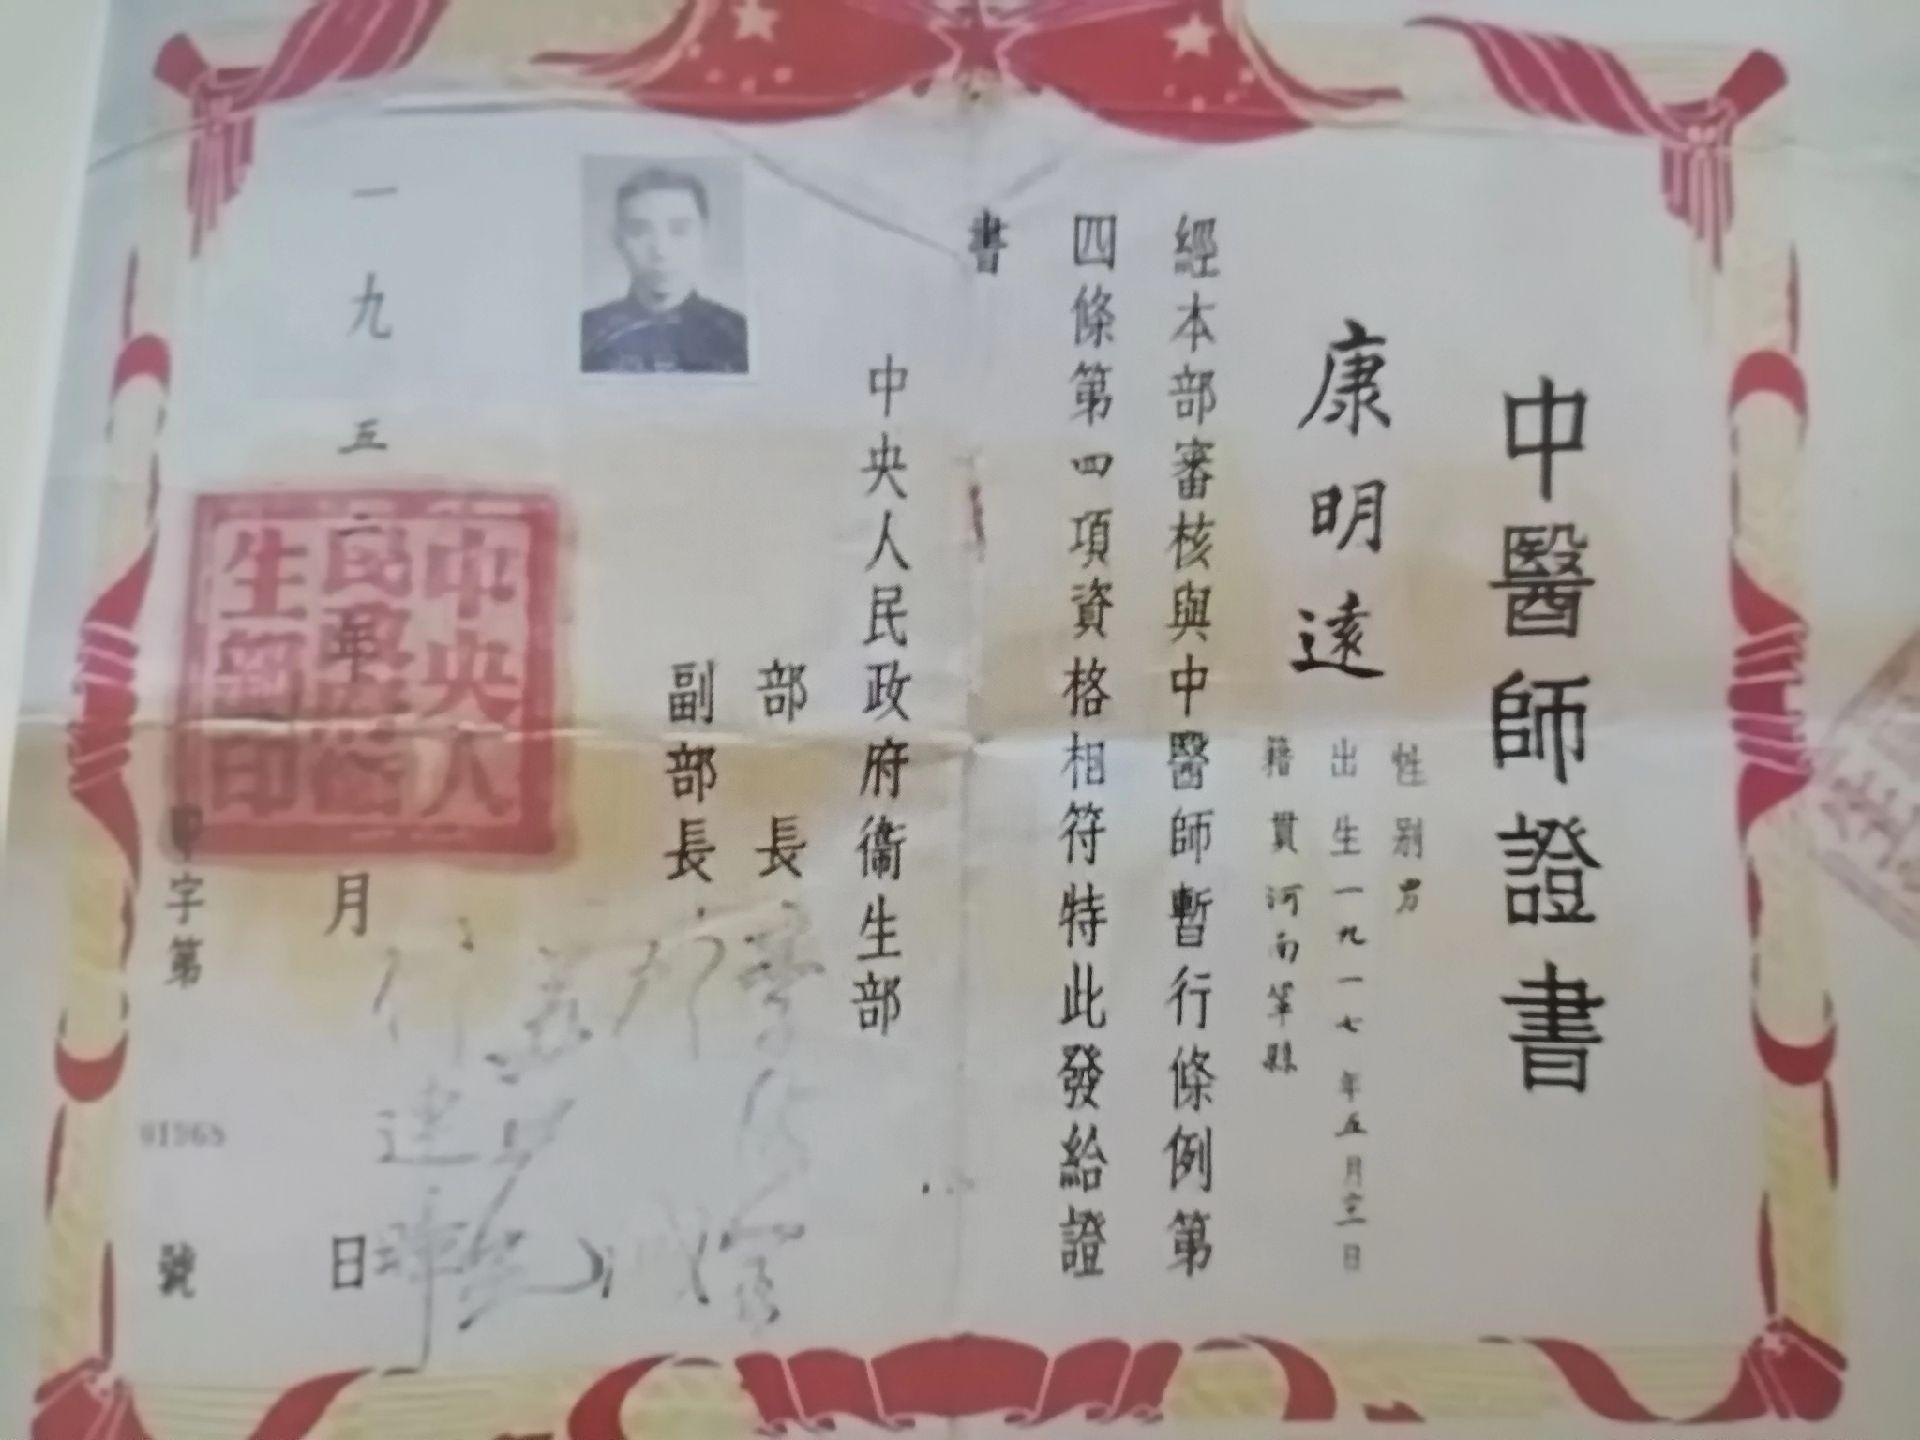 中醫師證書
康明遠
性别男
出生一九一七年五月三日
籍貫河南鞏縣
經本部審核與中醫師暫行條例第
四條第四項資格相符特此發給證
書
中央人民政府衞生部
部長
副部長
一九五二年
月
日
中央人
民政府衞
生部印
字第
號